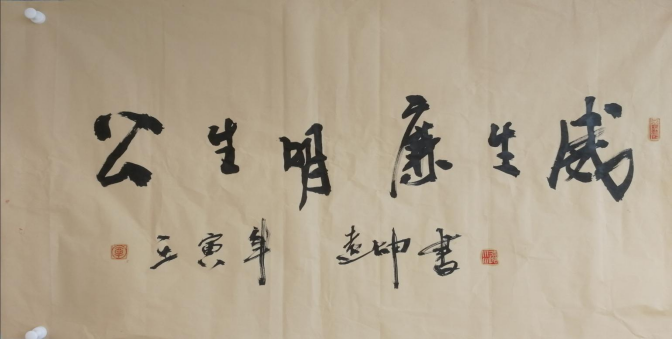 公生明廉生威
壬寅年 遠坤書